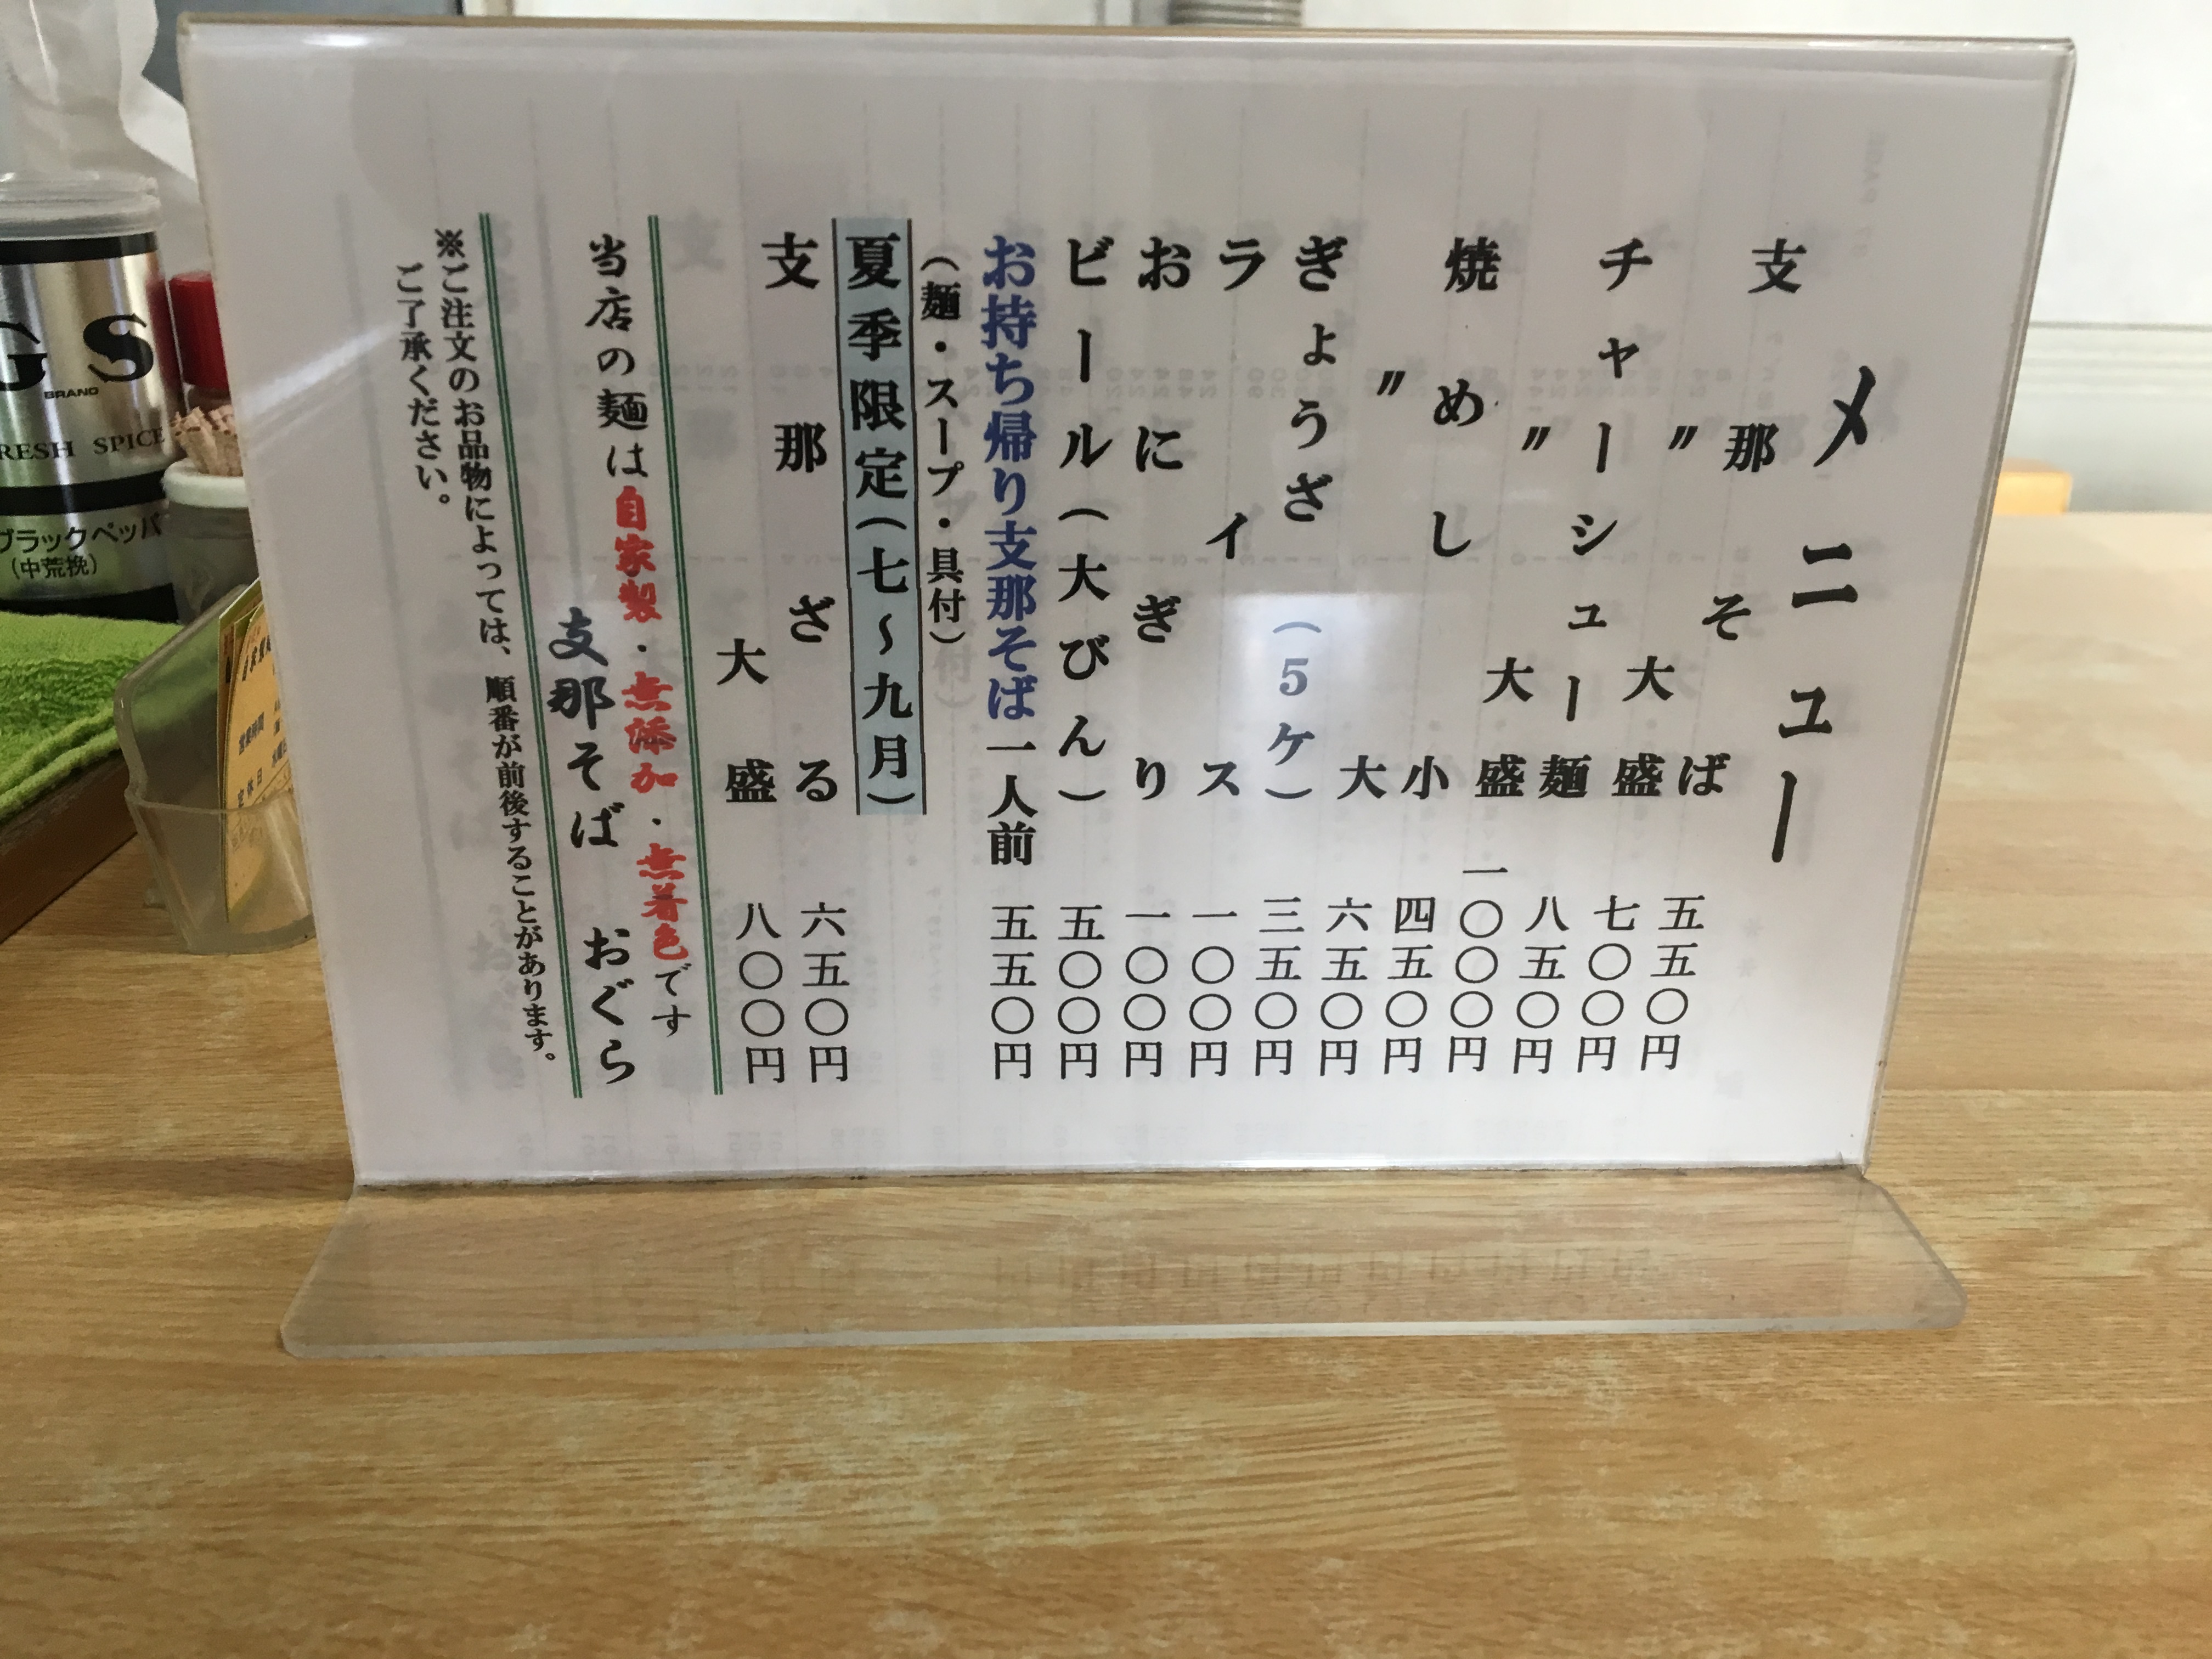 メニュー
支那そば 五五〇円
〃 大盛 七〇〇円
チャーシュー麺 八五〇円
〃 大盛 一〇〇〇円
焼めし 小 四五〇円
〃 大 六五〇円
ぎょうざ（5ケ） 三五〇円
ライス 一〇〇円
おにぎり 一〇〇円
ビール（大びん） 五〇〇円
お持ち帰り支那そば一人前 五五〇円
（麺・スープ・具付）
夏季限定（七～九月）
支那ざる 六五〇円
大盛 八〇〇円
当店の麺は自家製・無添加・無着色です
支那そば おぐら
※ご注文のお品物によっては、順番が前後することがあります。
ご了承ください。
GS
BRAND
FRESH SPICE
ブラックペッパ
(中荒挽)
営業時間
定休日